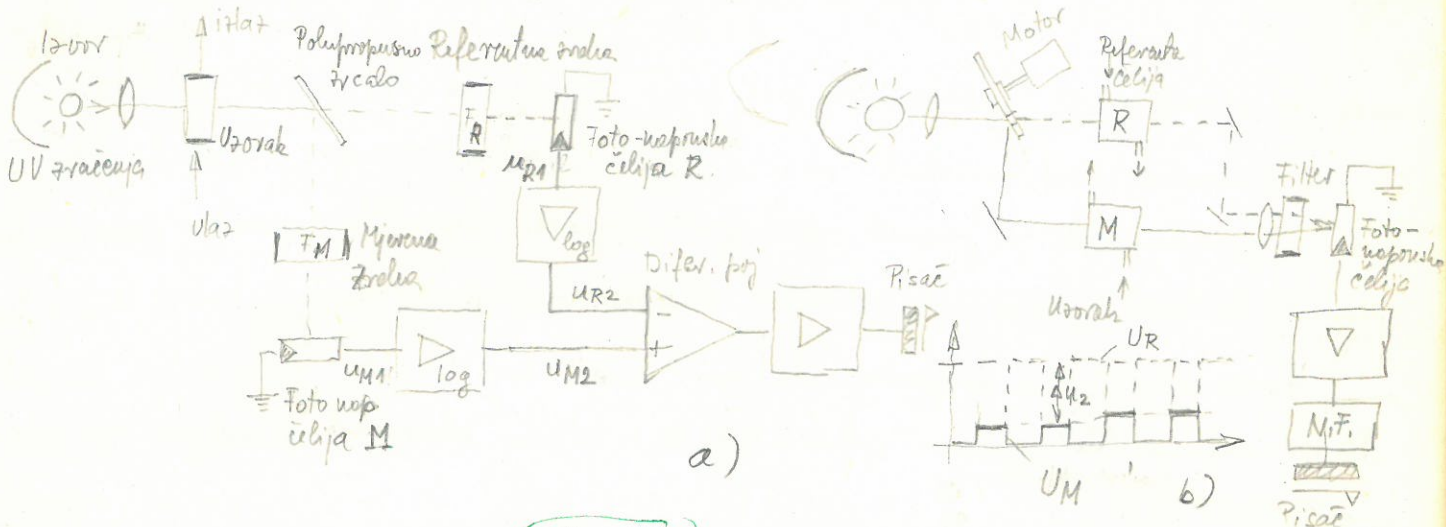 Izvor
UV zračenja
izlaz
Uzorak
ulaz
Polupropusno
zrcalo
Referentna zraka
F_R
Foto-naponska
ćelija R.
u_R1
log
u_R2
F_M
Mjerena
Zraka
Foto nap
ćelija M
u_M1
log
u_M2
Difer. poj
-
+
Pisač
a)
Motor
Referenta
ćelija
R
M
Uzorak
Filter
Foto-
naponska
ćelija
N.F.
Pisač
U_R
u_2
U_M
b)